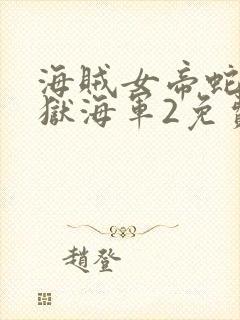 海賊女帝蛇
獄海軍2免費
趙登